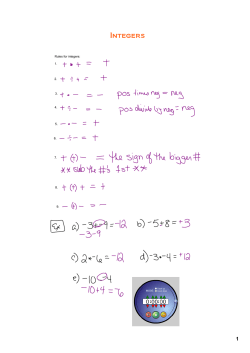 INTEGERS
Rules for integers
1. + • + = +
2. + ÷ + = +
3. + • - = - pos times neg = neg
4. + ÷ - = - pos divide by neg = neg
5. - • - = +
6. - ÷ - = +
7. + (+) - = the sign of the bigger #
** sub the #s 1st **
8. + (+) + = +
9. - (+) - = -
Ex a) -3-9=-12 b) -5+8=+3
-3-9
c) 2•-6=-12 d) -3•-4=+12
e) -10--4
-10+4=-6
1